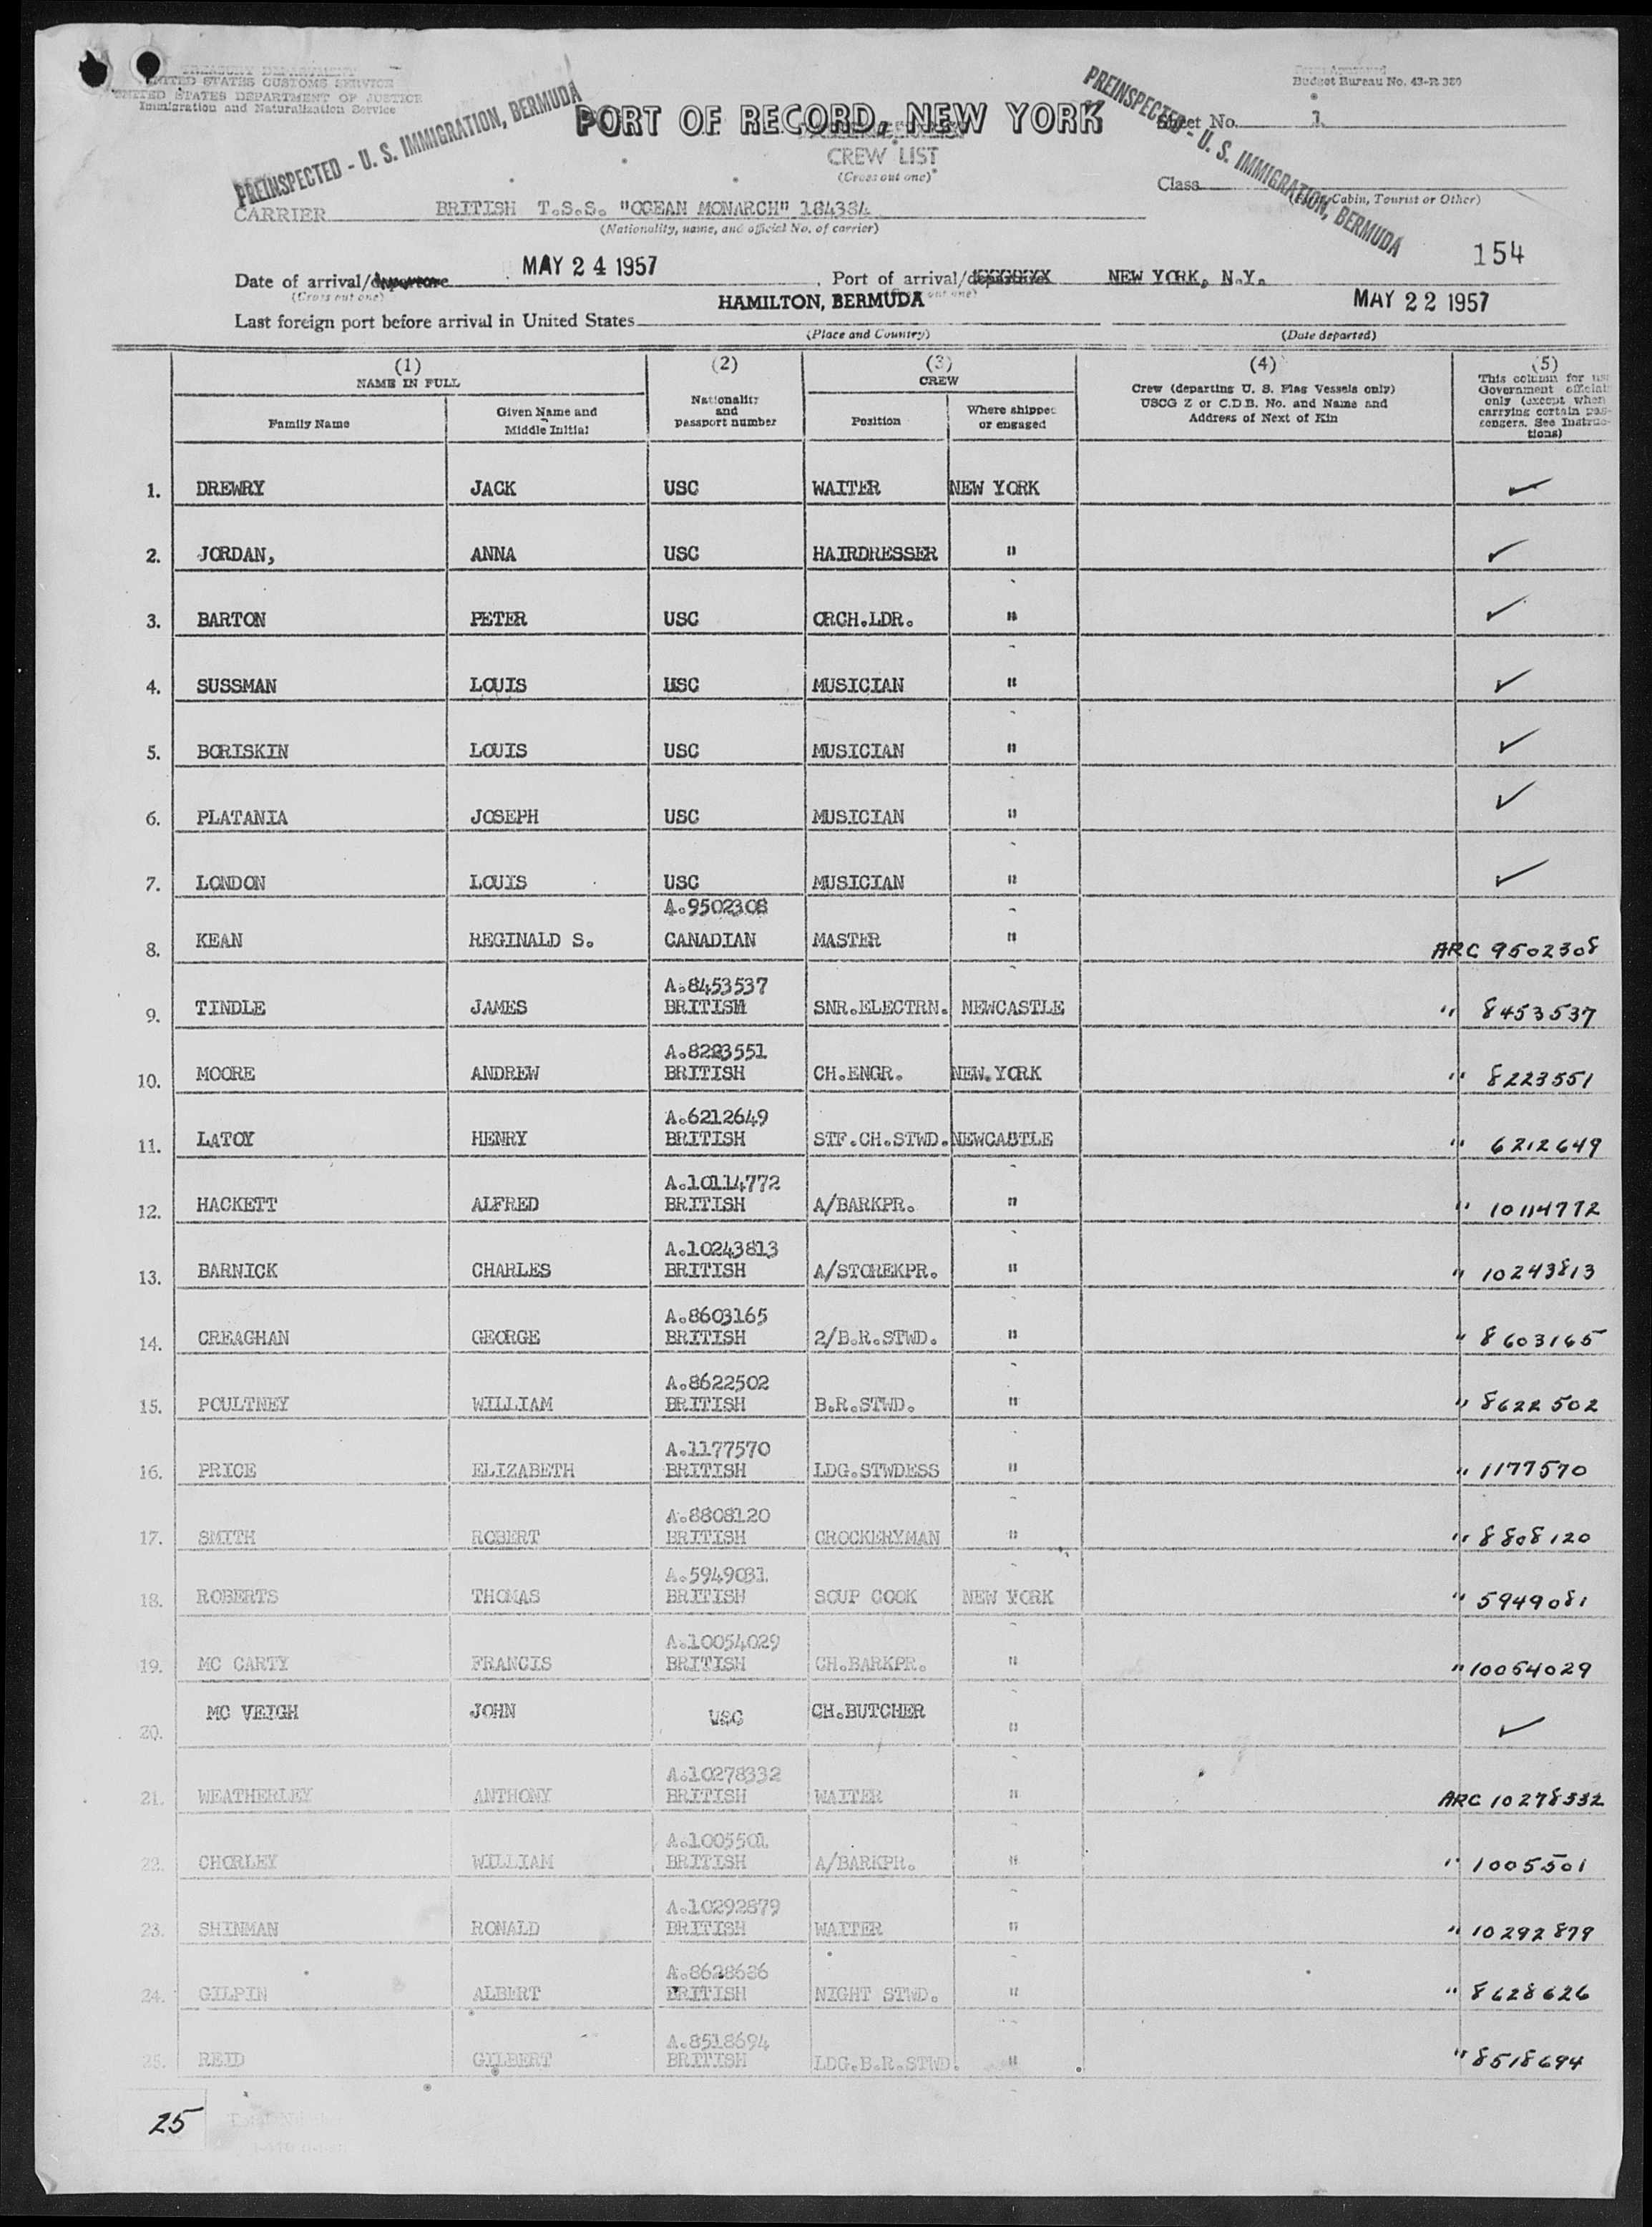 TREASURY DEPARTMENT
UNITED STATES CUSTOMS SERVICE
UNITED STATES DEPARTMENT OF JUSTICE
Immigration and Naturalization Service
PREINSPECTED - U. S. IMMIGRATION, BERMUDA
PORT OF RECORD, NEW YORK
PREINSPECTED - U. S. IMMIGRATION, BERMUDA
Form Approved
Budget Bureau No. 43-R 380
Sheet No. 1
CREW LIST
(Cross out one)
Class
(First, Cabin, Tourist or Other)
CARRIER BRITISH T.S.S. "OCEAN MONARCH" 184384
(Nationality, name, and official No. of carrier)
154
Date of arrival/departure MAY 24 1957 Port of arrival/departure NEW YORK, N.Y.
(Cross out one) (Cross out one)
Last foreign port before arrival in United States HAMILTON, BERMUDA MAY 22 1957
(Place and Country) (Date departed)
(1) (2) (3) (4) (5)
NAME IN FULL Nationality and passport number CREW Crew (departing U. S. Flag Vessels only) USCG Z or C.D.B. No. and Name and Address of Next of Kin This column for use Government officials only (except when carrying certain pas-sengers. See Instruc-tions)
Family Name Given Name and Middle Initial Position Where shipped or engaged
1. DREWRY JACK USC WAITER NEW YORK ✓
2. JORDAN, ANNA USC HAIRDRESSER " ✓
3. BARTON PETER USC ORCH.LDR. " ✓
4. SUSSMAN LOUIS USC MUSICIAN " ✓
5. BORISKIN LOUIS USC MUSICIAN " ✓
6. PLATANIA JOSEPH USC MUSICIAN " ✓
7. LONDON LOUIS USC MUSICIAN " ✓
A.9502308
8. KEAN REGINALD S. CANADIAN MASTER " ARC 9502308
A.8453537
9. TINDLE JAMES BRITISH SNR.ELECTRN. NEWCASTLE " 8453537
A.8223551
10. MOORE ANDREW BRITISH CH.ENGR. NEW.YORK " 8223551
A.6212649
11. LATOY HENRY BRITISH STF.CH.STWD. NEWCASTLE " 6212649
A.10114772
12. HACKETT ALFRED BRITISH A/BARKPR. " " 10114772
A.10243813
13. BARNICK CHARLES BRITISH A/STOREKPR. " " 10243813
A.8603165
14. CREAGHAN GEORGE BRITISH 2/B.R.STWD. " " 8603165
A.8622502
15. POULTNEY WILLIAM BRITISH B.R.STWD. " " 8622502
A.1177570
16. PRICE ELIZABETH BRITISH LDG.STWDESS " " 1177570
A.8808120
17. SMITH ROBERT BRITISH CROCKERYMAN " " 8808120
A.5949081
18. ROBERTS THOMAS BRITISH SOUP COOK NEW YORK " 5949081
A.10054029
19. MC CARTY FRANCIS BRITISH CH.BARKPR. " " 10054029
20. MC VEIGH JOHN USC CH.BUTCHER " ✓
A.10278332
21. WEATHERLEY ANTHONY BRITISH WAITER " ARC 10278332
A.1005501
22. CHORLEY WILLIAM BRITISH A/BARKPR. " " 1005501
A.10292879
23. SHINMAN RONALD BRITISH WAITER " " 10292879
A.8628626
24. GILPIN ALBERT BRITISH NIGHT STWD. " " 8628626
A.8518694
25. REID GILBERT BRITISH LDG.B.R.STWD. " " 8518694
25